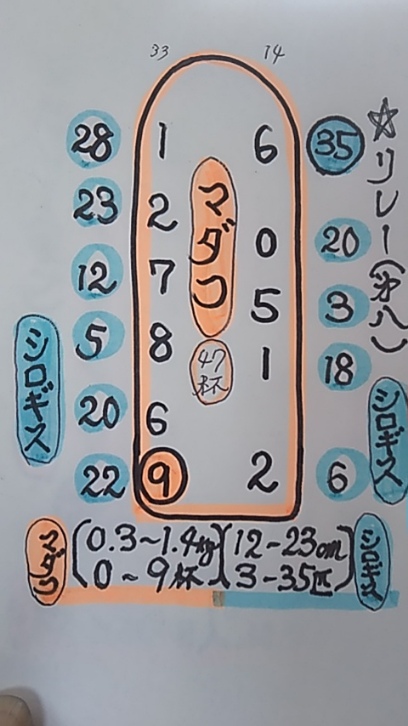 33 14
28 1 6 35
23 2 0 20
12 7 5 3
5 8 1 18
20 6
22 9 2 6
マダコ
47杯
シロギス
シロギス
☆リレー(第八)
マダコ (0.3~1.4kg
0~9杯)
(12-23cm
3-35匹) シロギス